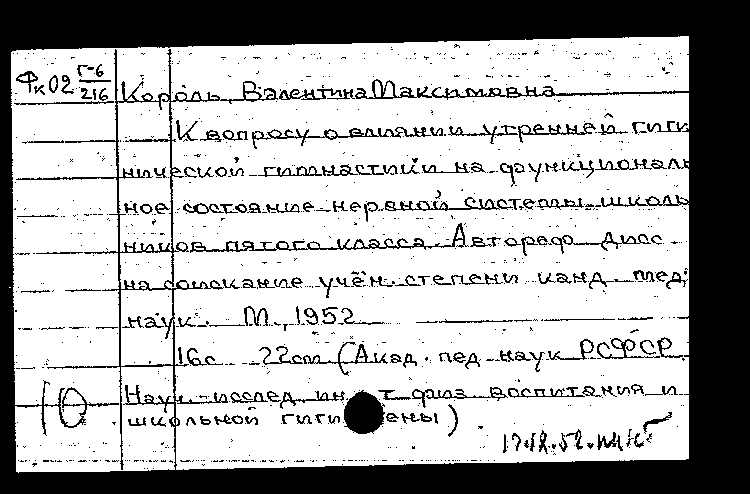 Фк02 Г-6
216
Король, Валентина Максимовна
К вопросу о влиянии утренней гиги
нической гимнастики на функциональ
ное состояние нервной системы школь
ников пятого класса. Автореф дисс.
на соискание учён. степени канд. мед.
наук. М., 1952
16с 22см (Акад. пед. наук РСФСР.
Науч.-исслед. ин т физ. воспитания и
школьной гиги ены)
10